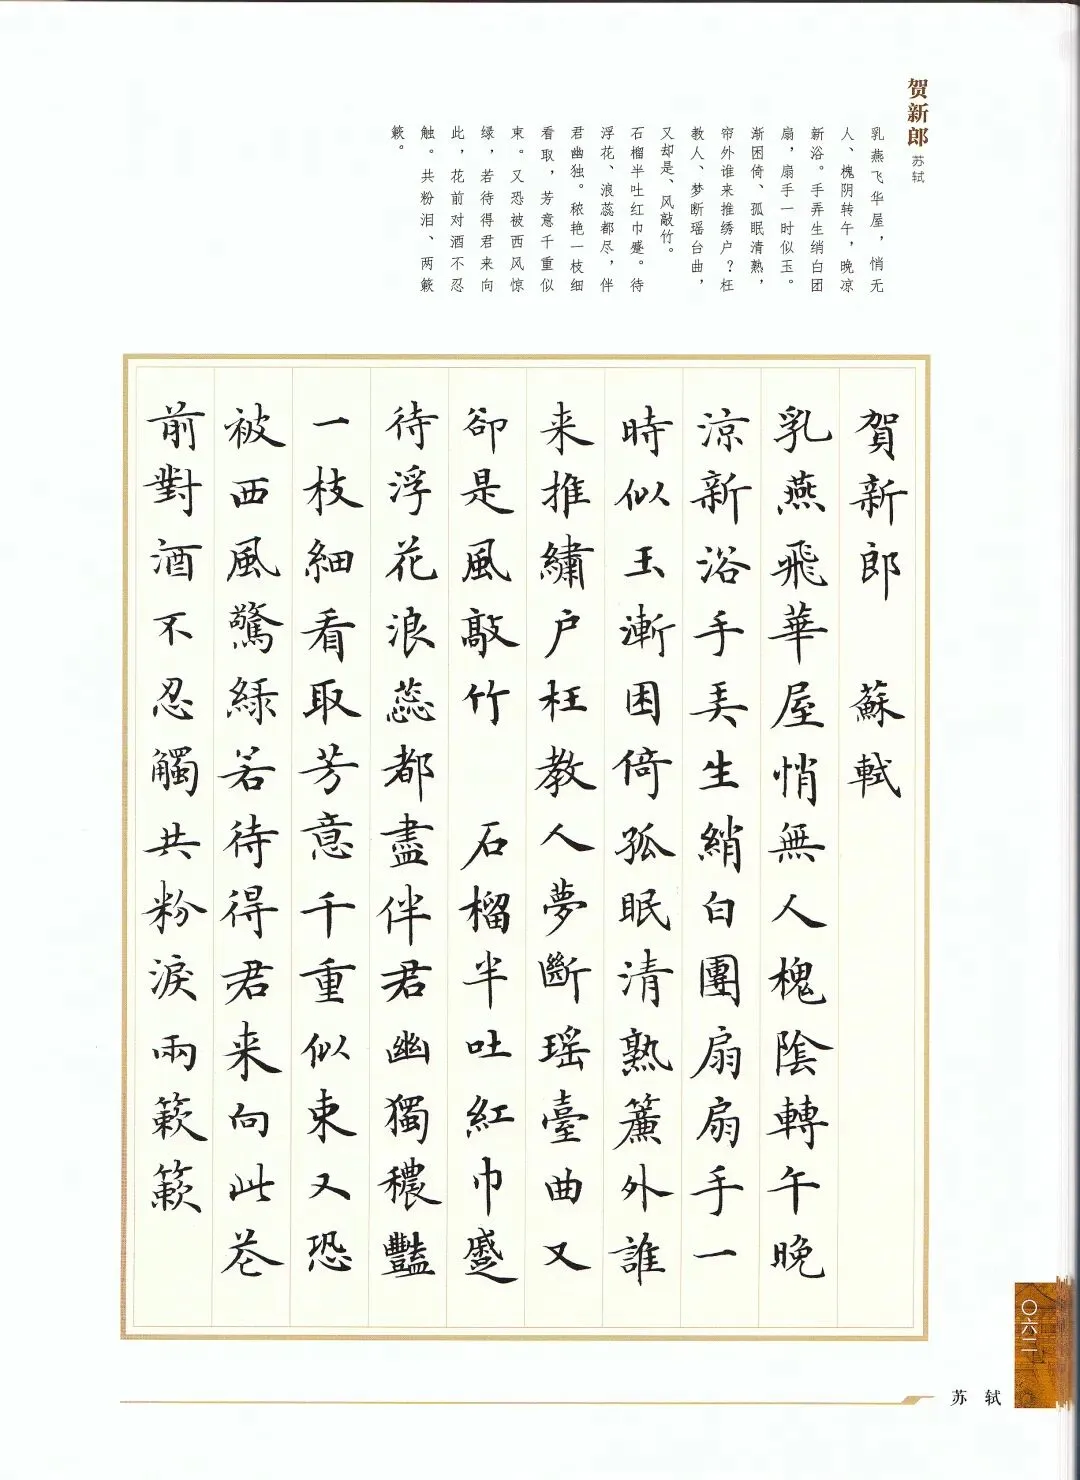 贺新郎 苏轼
乳燕飞华屋，悄无
人、槐阴转午，晚凉
新浴。手弄生绡白团
扇，扇手一时似玉。
渐困倚、孤眠清熟，
帘外谁来推绣户？枉
教人、梦断瑶台曲，
又却是、风敲竹。
石榴半吐红巾蹙。待
浮花、浪蕊都尽，伴
君幽独。秾艳一枝细
看取，芳意千重似
束。又恐被西风惊
绿，若待得君来向
此，花前对酒不忍
触。共粉泪、两簌
簌。
賀新郎 蘇軾
乳燕飛華屋悄無人槐陰轉午晚
涼新浴手弄生綃白團扇扇手一
時似玉漸困倚孤眠清熟簾外誰
来推繡户枉教人夢斷瑶臺曲又
卻是風敲竹 石榴半吐紅巾蹙
待浮花浪蕊都盡伴君幽獨穠豔
一枝細看取芳意千重似束又恐
被西風驚緑若待得君来向此花
前對酒不忍觸共粉淚兩簌簌
〇六二
苏轼